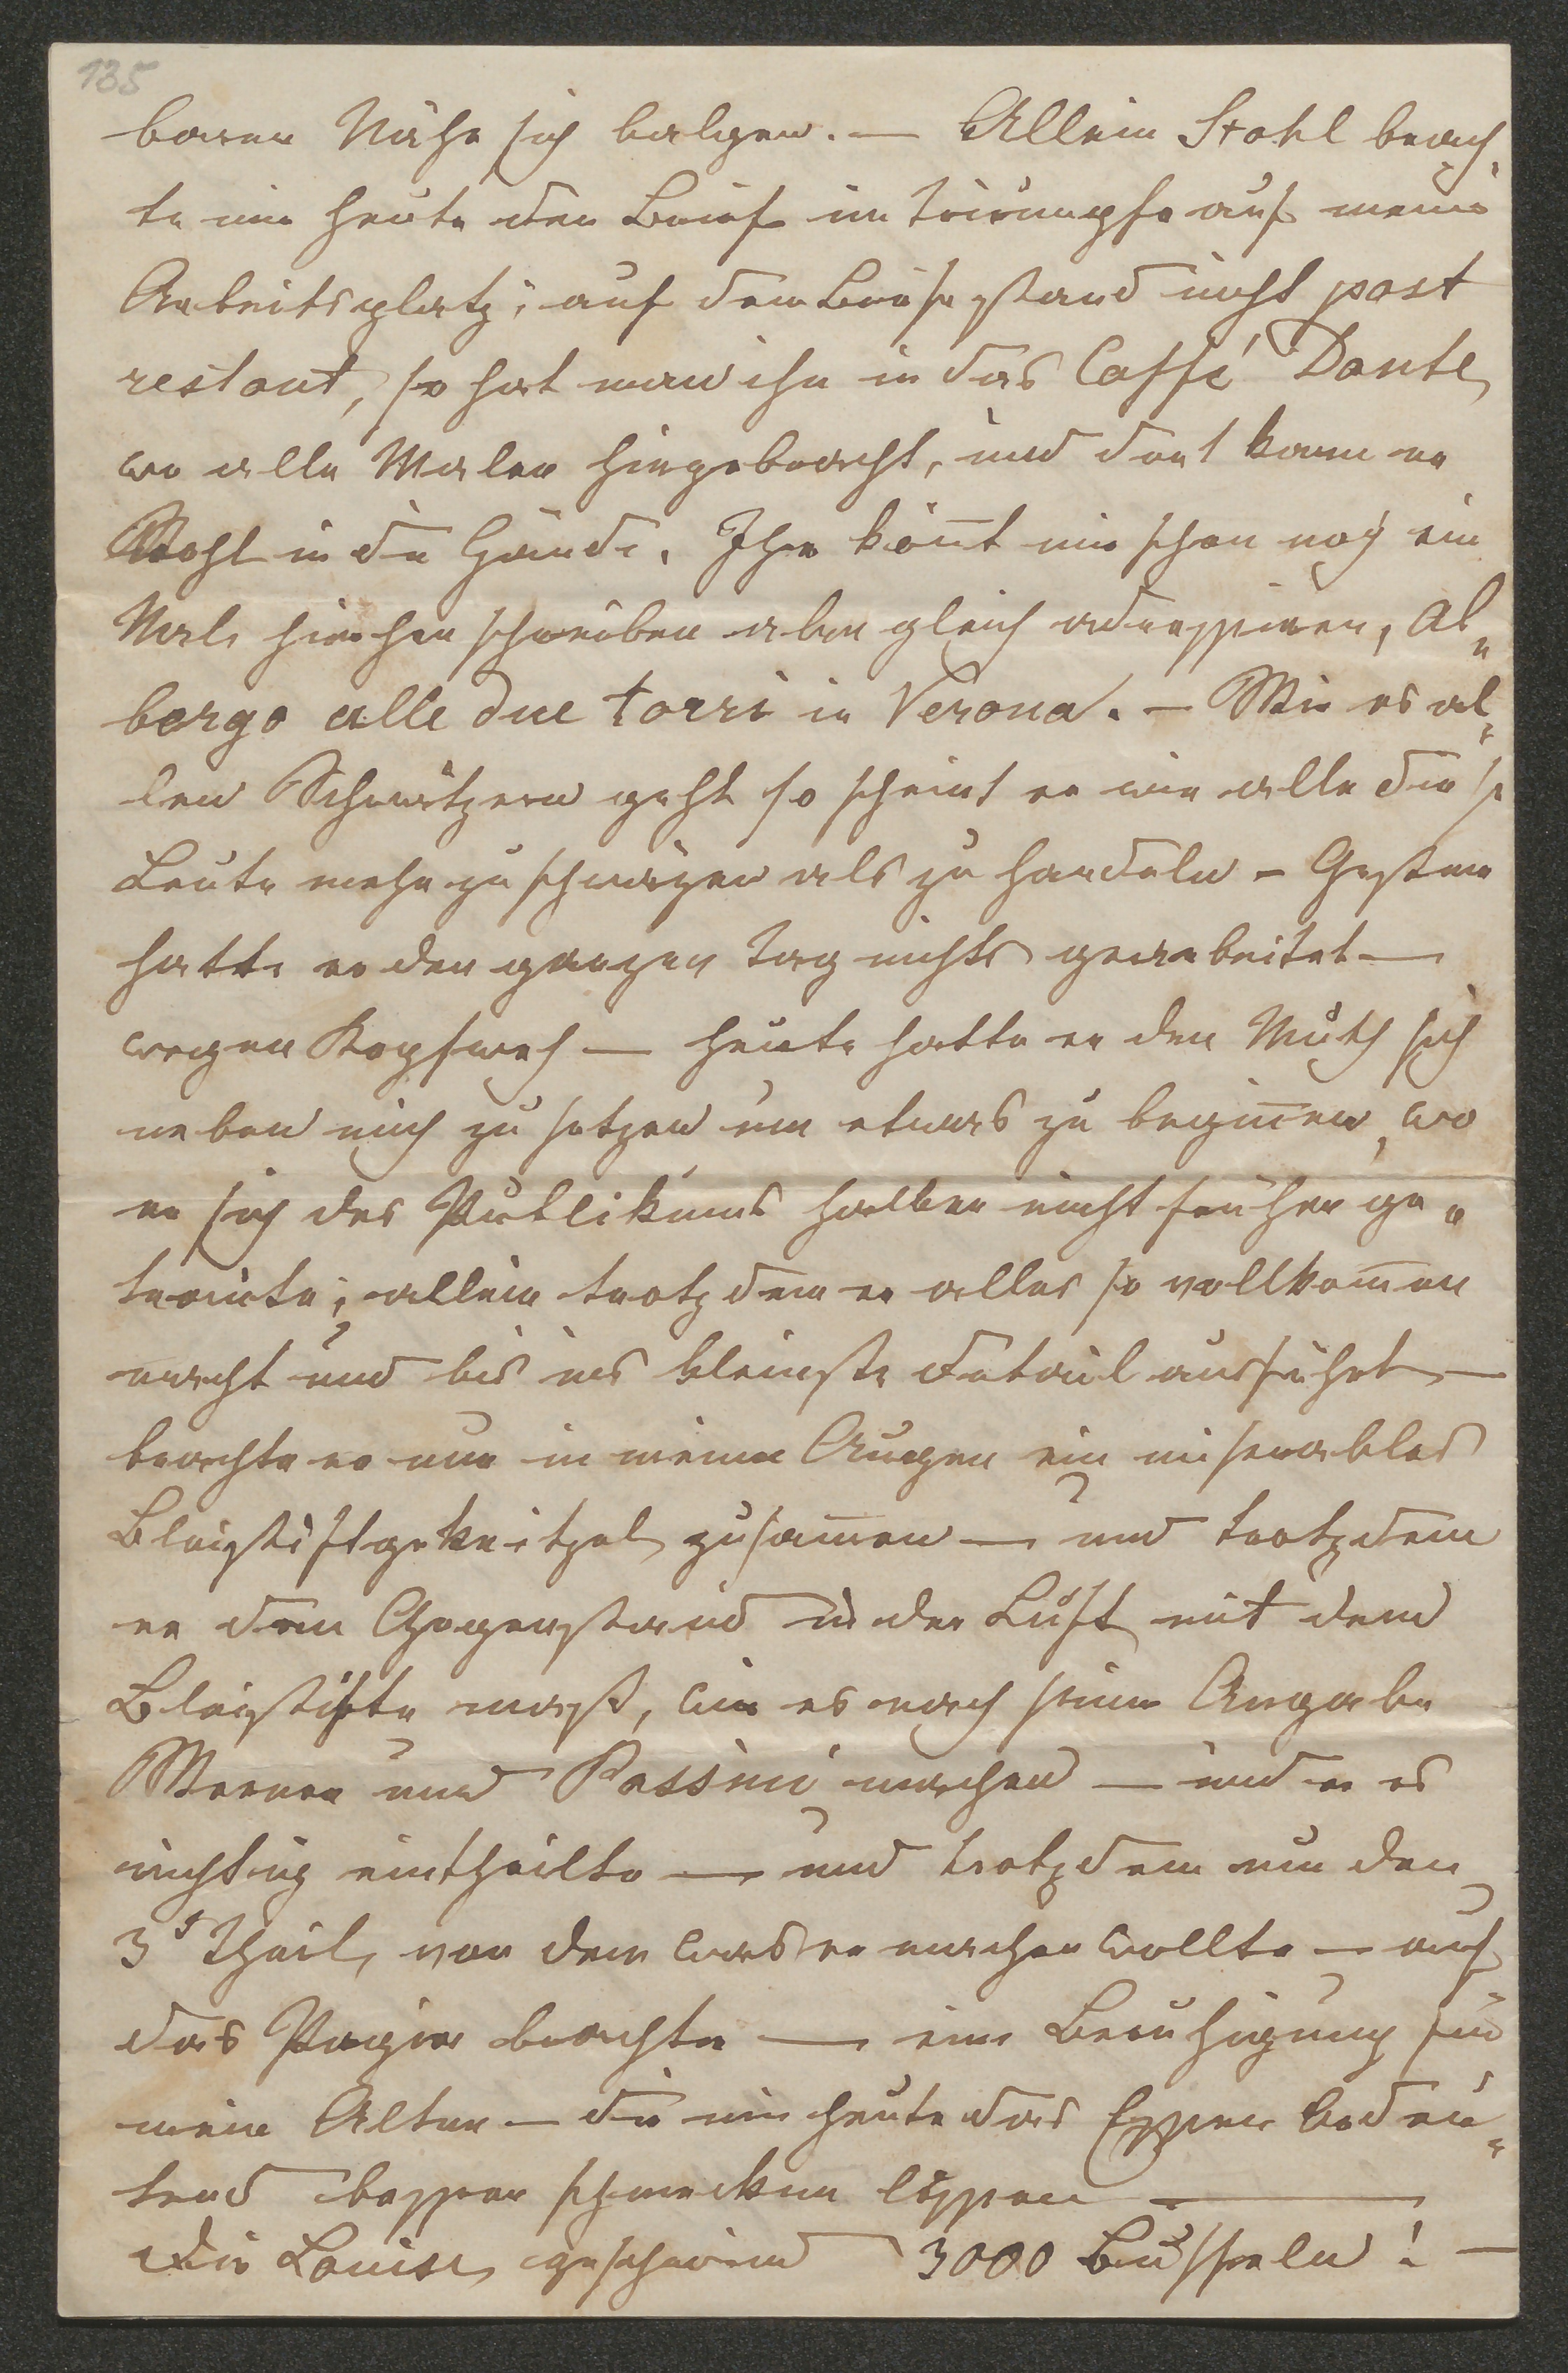 135
barer Nähe sich balgen. — Allein Stohl brach,
te mir heute den Brief im Triumpfe auf meinen
Arbeitsplatz; auf dem Briefe stand nicht post
restant, so hat man ihn in das Caffé Dante,
wo alle Maler hingebracht, und dort kam er
Stohl in die Hände. Ihr könt mir schon noch ein
Mal hierher schreiben aber gleich adressiren, Al„
bergo alle due torri in Verona. — Wie es al„
len Schwätzern geht so scheint er wie alle diese
Leute mehr zu schwäzen als zu handeln – Gestern
hatte er den ganzen Tag nichts gearbeitet —
wegen Kopfweh — heute hatte er den Muth sich
neben mich zu setzen um etwas zu begiñen, wo
er sich des Publikums halber nicht früher ge„
traute; allein trotzdem er alles so vollkom̃en
macht und bis ins kleinste Detail ausführt —
brachte er nur in meinen Augen ein miserables
Bleistiftgekritzel zusam̃en — und trotzdem
er den Gegenstand in der Luft mit dem
Bleistifte maß, wie es nach seiner Angabe
Werner und Passini machen — und er es
richtig eintheilte — und trotzdem nur den
3ᵗ Theil, von dem was er machen wollte — auf
das Papier brachte — eine Beruhigung für
mein Alter — die mir heute das Essen bedeu„
tend besser schmecken lassen —
Die Louise geschwind 3000 Busseln! —